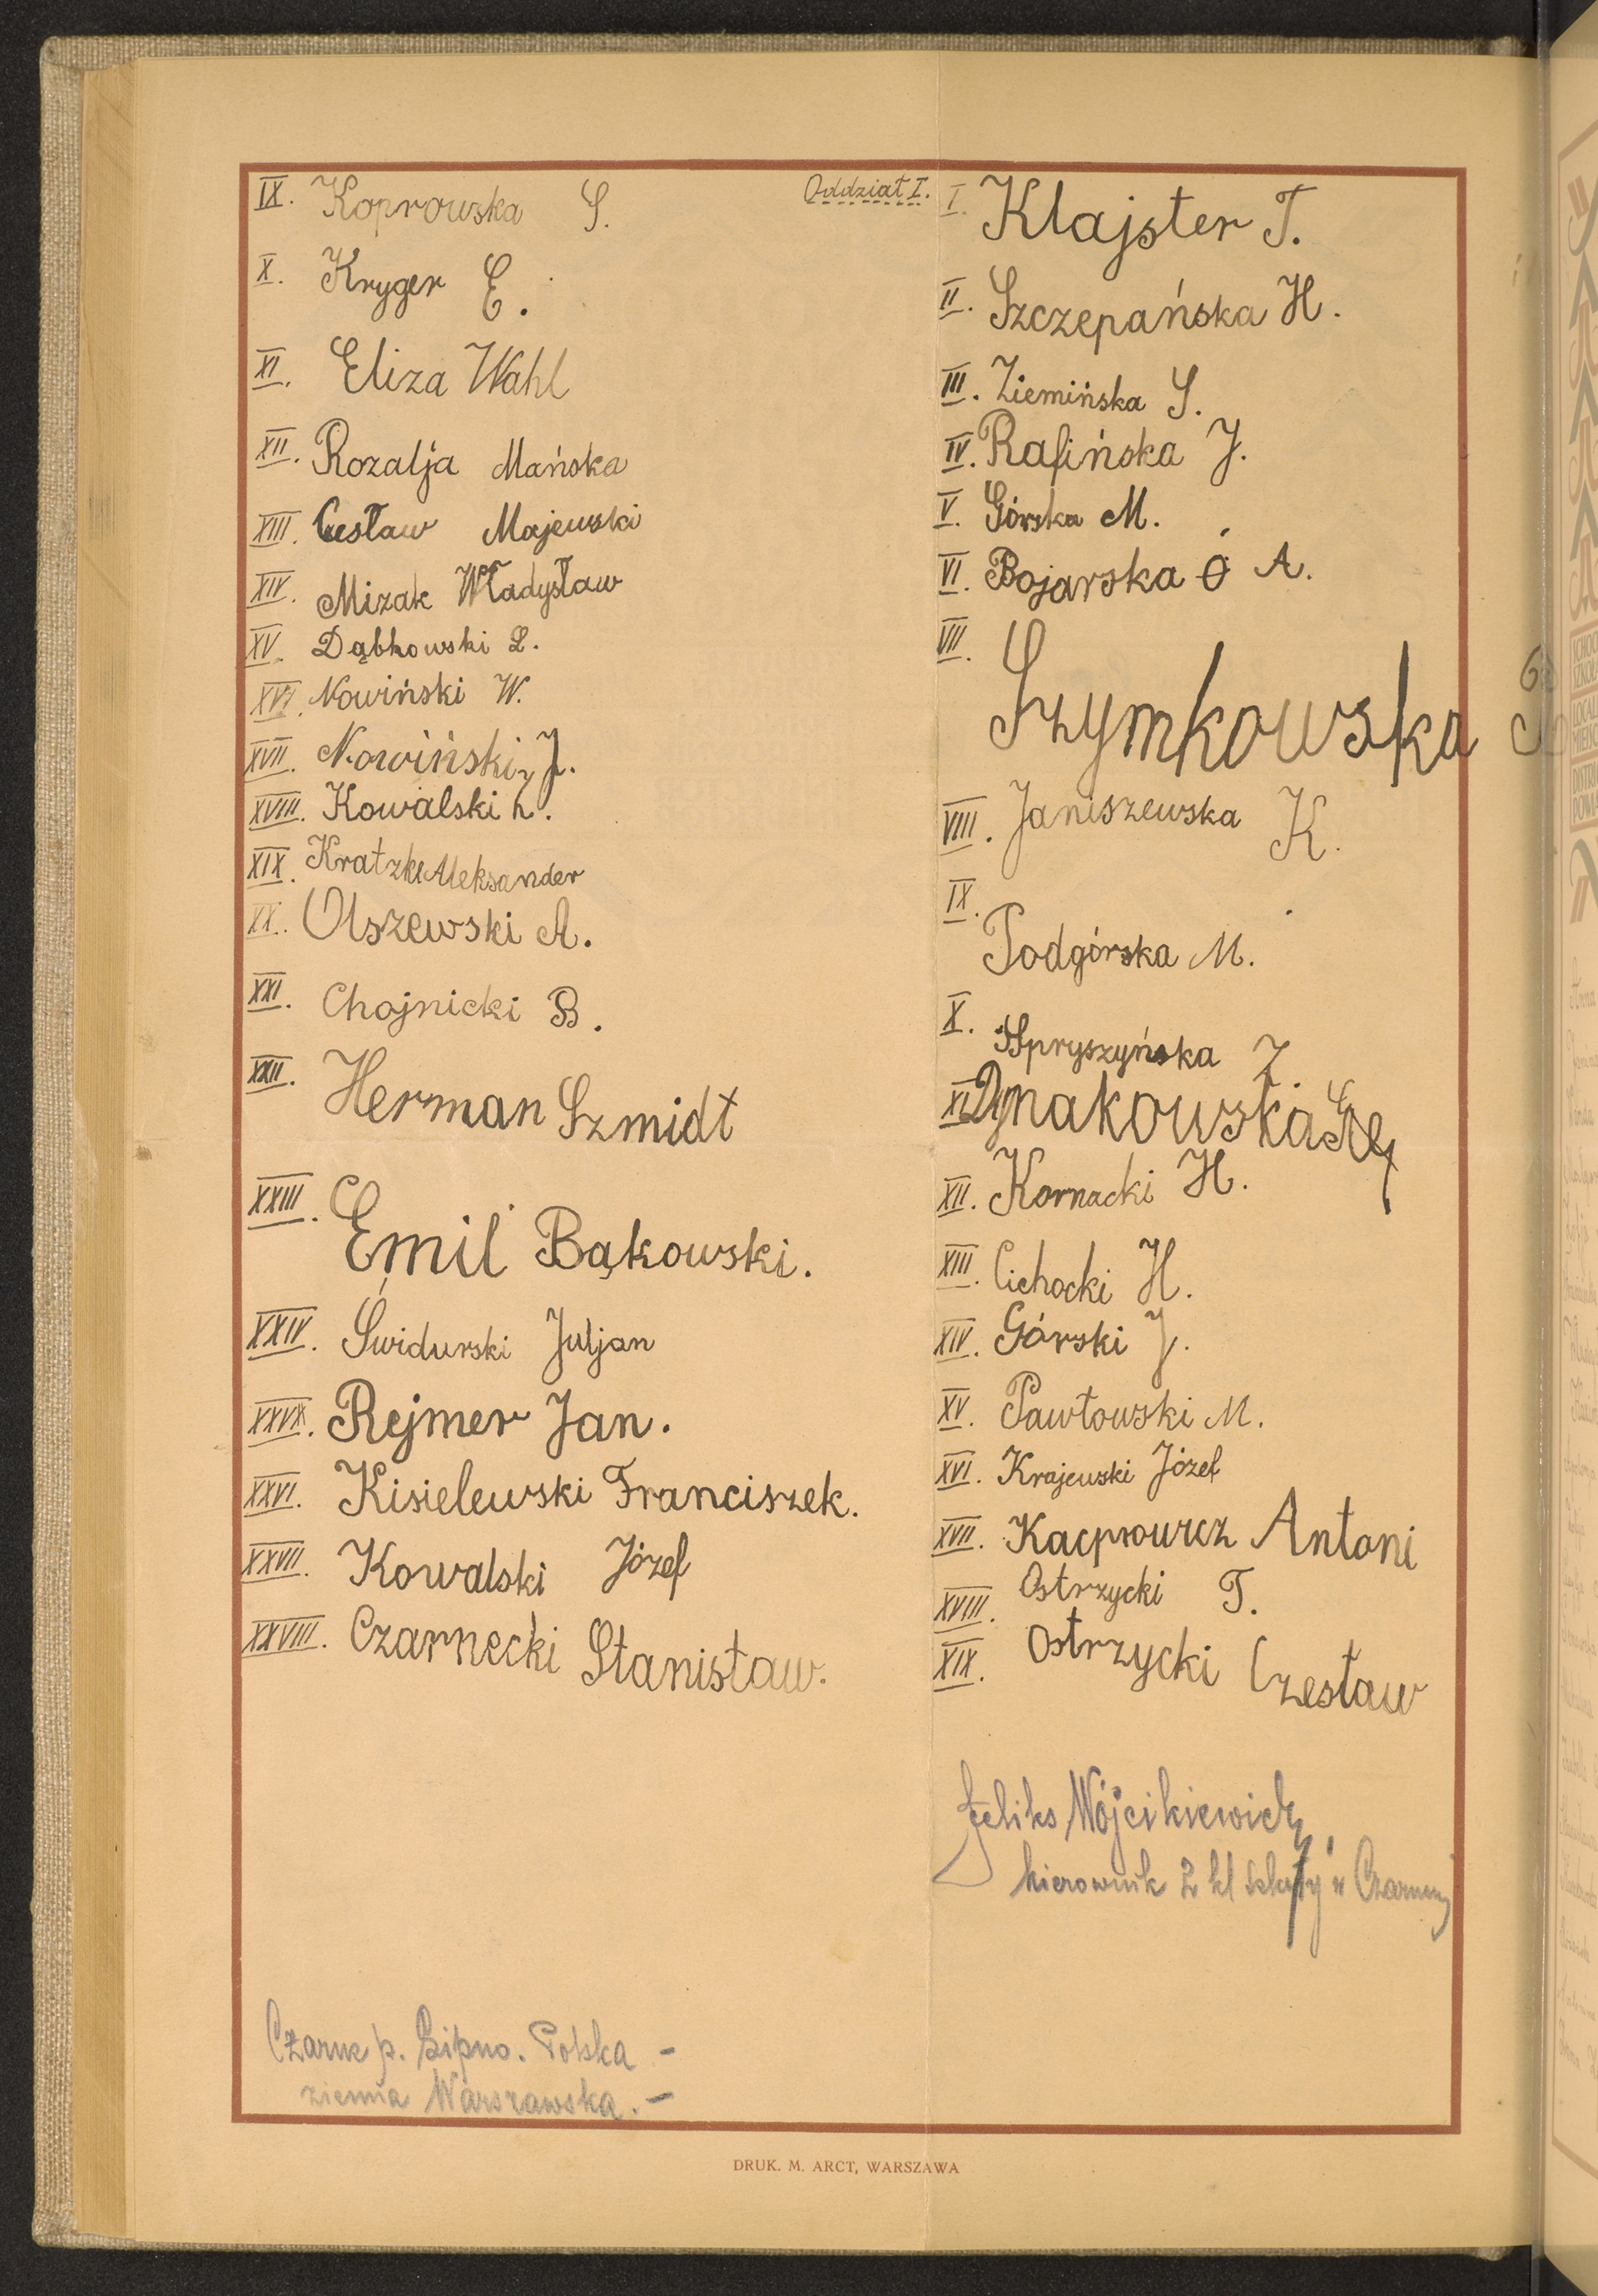 IX. Koprowska S.
X. Kryger E.
XI. Eliza Wahl
XII. Rozalja Mańska
XIII. Cesław Majewski
XIV. Mizak Władysław
XV. Dąbkowski L.
XVI. Nowiński W.
XVII. Nowiński J.
XVIII. Kowalski h.
XIX. Kratzke Aleksander
XX. Olszewski A.
XXI. Chojnicki B.
XXII. Herman Szmidt
XXIII. Emil Bąkowski.
XXIV. Świdurski Juljan
XXV. Rejmer Jan.
XXVI. Kisielewski Franciszek.
XXVII. Kowalski Józef
XXVIII. Czarnecki Stanisław.
Czarne p. Lipno. Polska -
ziemia Warszawska. -
Oddział I.
I. Klajster T.
II. Szczepańska H.
III. Ziemińska S.
IV. Rafińska J.
V. Górska M.
VI. Bojarska A.
VII. Szymkowska
VIII. Janiszewska K.
IX. Podgórska M.
X. Spryszyńska Z.
XI.
XII. Kornacki H.
XIII. Cichocki H.
XIV. Górski J.
XV. Pawłowski M.
XVI. Krajewski Józef
XVII. Kacprowicz Antoni
XVIII. Ostrzycki T.
XIX. Ostrzycki Czesław
Feliks Wójcikiewicz
kierownik 2 kl szkoły w Czarnem
DRUK. M. ARCT, WARSZAWA